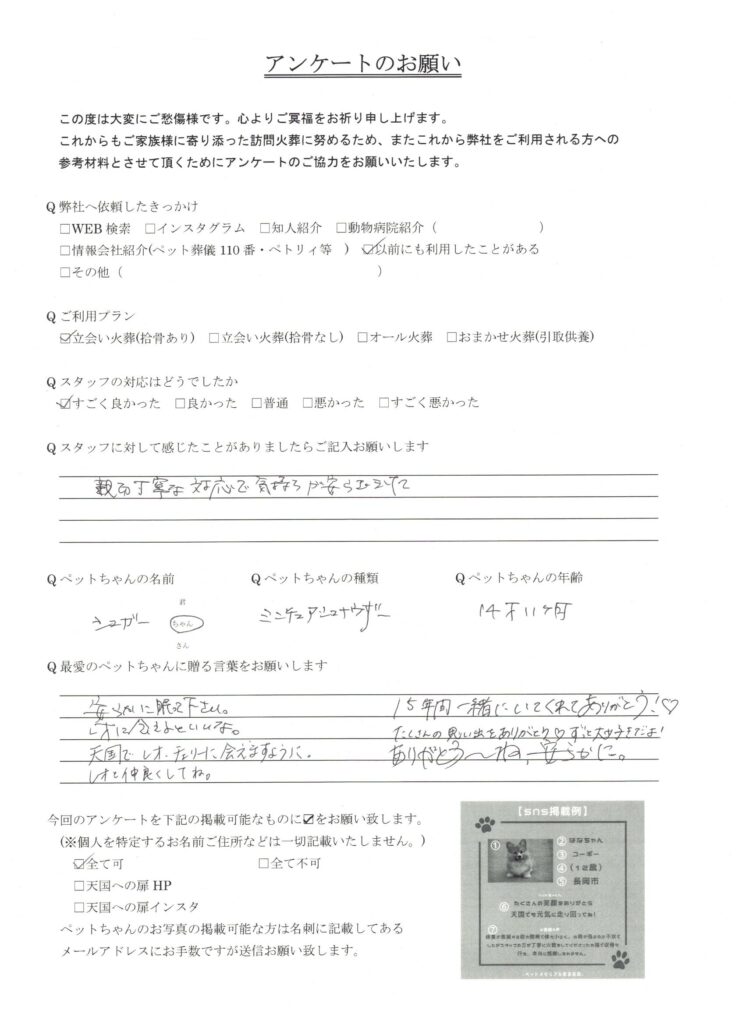 アンケートのお願い
この度は大変にご愁傷様です。心よりご冥福をお祈り申し上げます。
これからもご家族様に寄り添った訪問火葬に努めるため、またこれから弊社をご利用される方への
参考材料とさせて頂くためにアンケートのご協力をお願いいたします。
Q 弊社へ依頼したきっかけ
□WEB 検索 □インスタグラム □知人紹介 □動物病院紹介（ ）
□情報会社紹介(ペット葬儀 110 番・ペトリィ等 ） ☑以前にも利用したことがある
□その他（ ）
Q ご利用プラン
☑立会い火葬(拾骨あり) □立会い火葬(拾骨なし) □オール火葬 □おまかせ火葬(引取供養)
Q スタッフの対応はどうでしたか
☑すごく良かった □良かった □普通 □悪かった □すごく悪かった
Q スタッフに対して感じたことがありましたらご記入お願いします
親切丁寧な対応で気持ちが安らぎました
Q ペットちゃんの名前 Q ペットちゃんの種類 Q ペットちゃんの年齢
君
シュガー ちゃん ミニチュアシュナウザー 14才11ヶ月
さん
Q 最愛のペットちゃんに贈る言葉をお願いします
安らかに眠って下さい。 15年間一緒にいてくれてありがとう!♡
レオに会えるといいな。 たくさんの思い出をありがとう♡ずっと大好きだよ!
天国でレオ、チェリーに会えますように。 ありがとう〜ね、安らかに。
レオと仲良くしてね。
今回のアンケートを下記の掲載可能なものに☑をお願い致します。
(※個人を特定するお名前ご住所などは一切記載いたしません。)
☑全て可 □全て不可
□天国への扉 HP
□天国への扉インスタ
ペットちゃんのお写真の掲載可能な方は名刺に記載してある
メールアドレスにお手数ですが送信お願い致します。
【sns掲載例】
① ② はなちゃん
③ コーギー
④ （12歳）
⑤ 長岡市
⑥ たくさんの笑顔をありがとう
天国でも元気に走り回ってね！
⑦